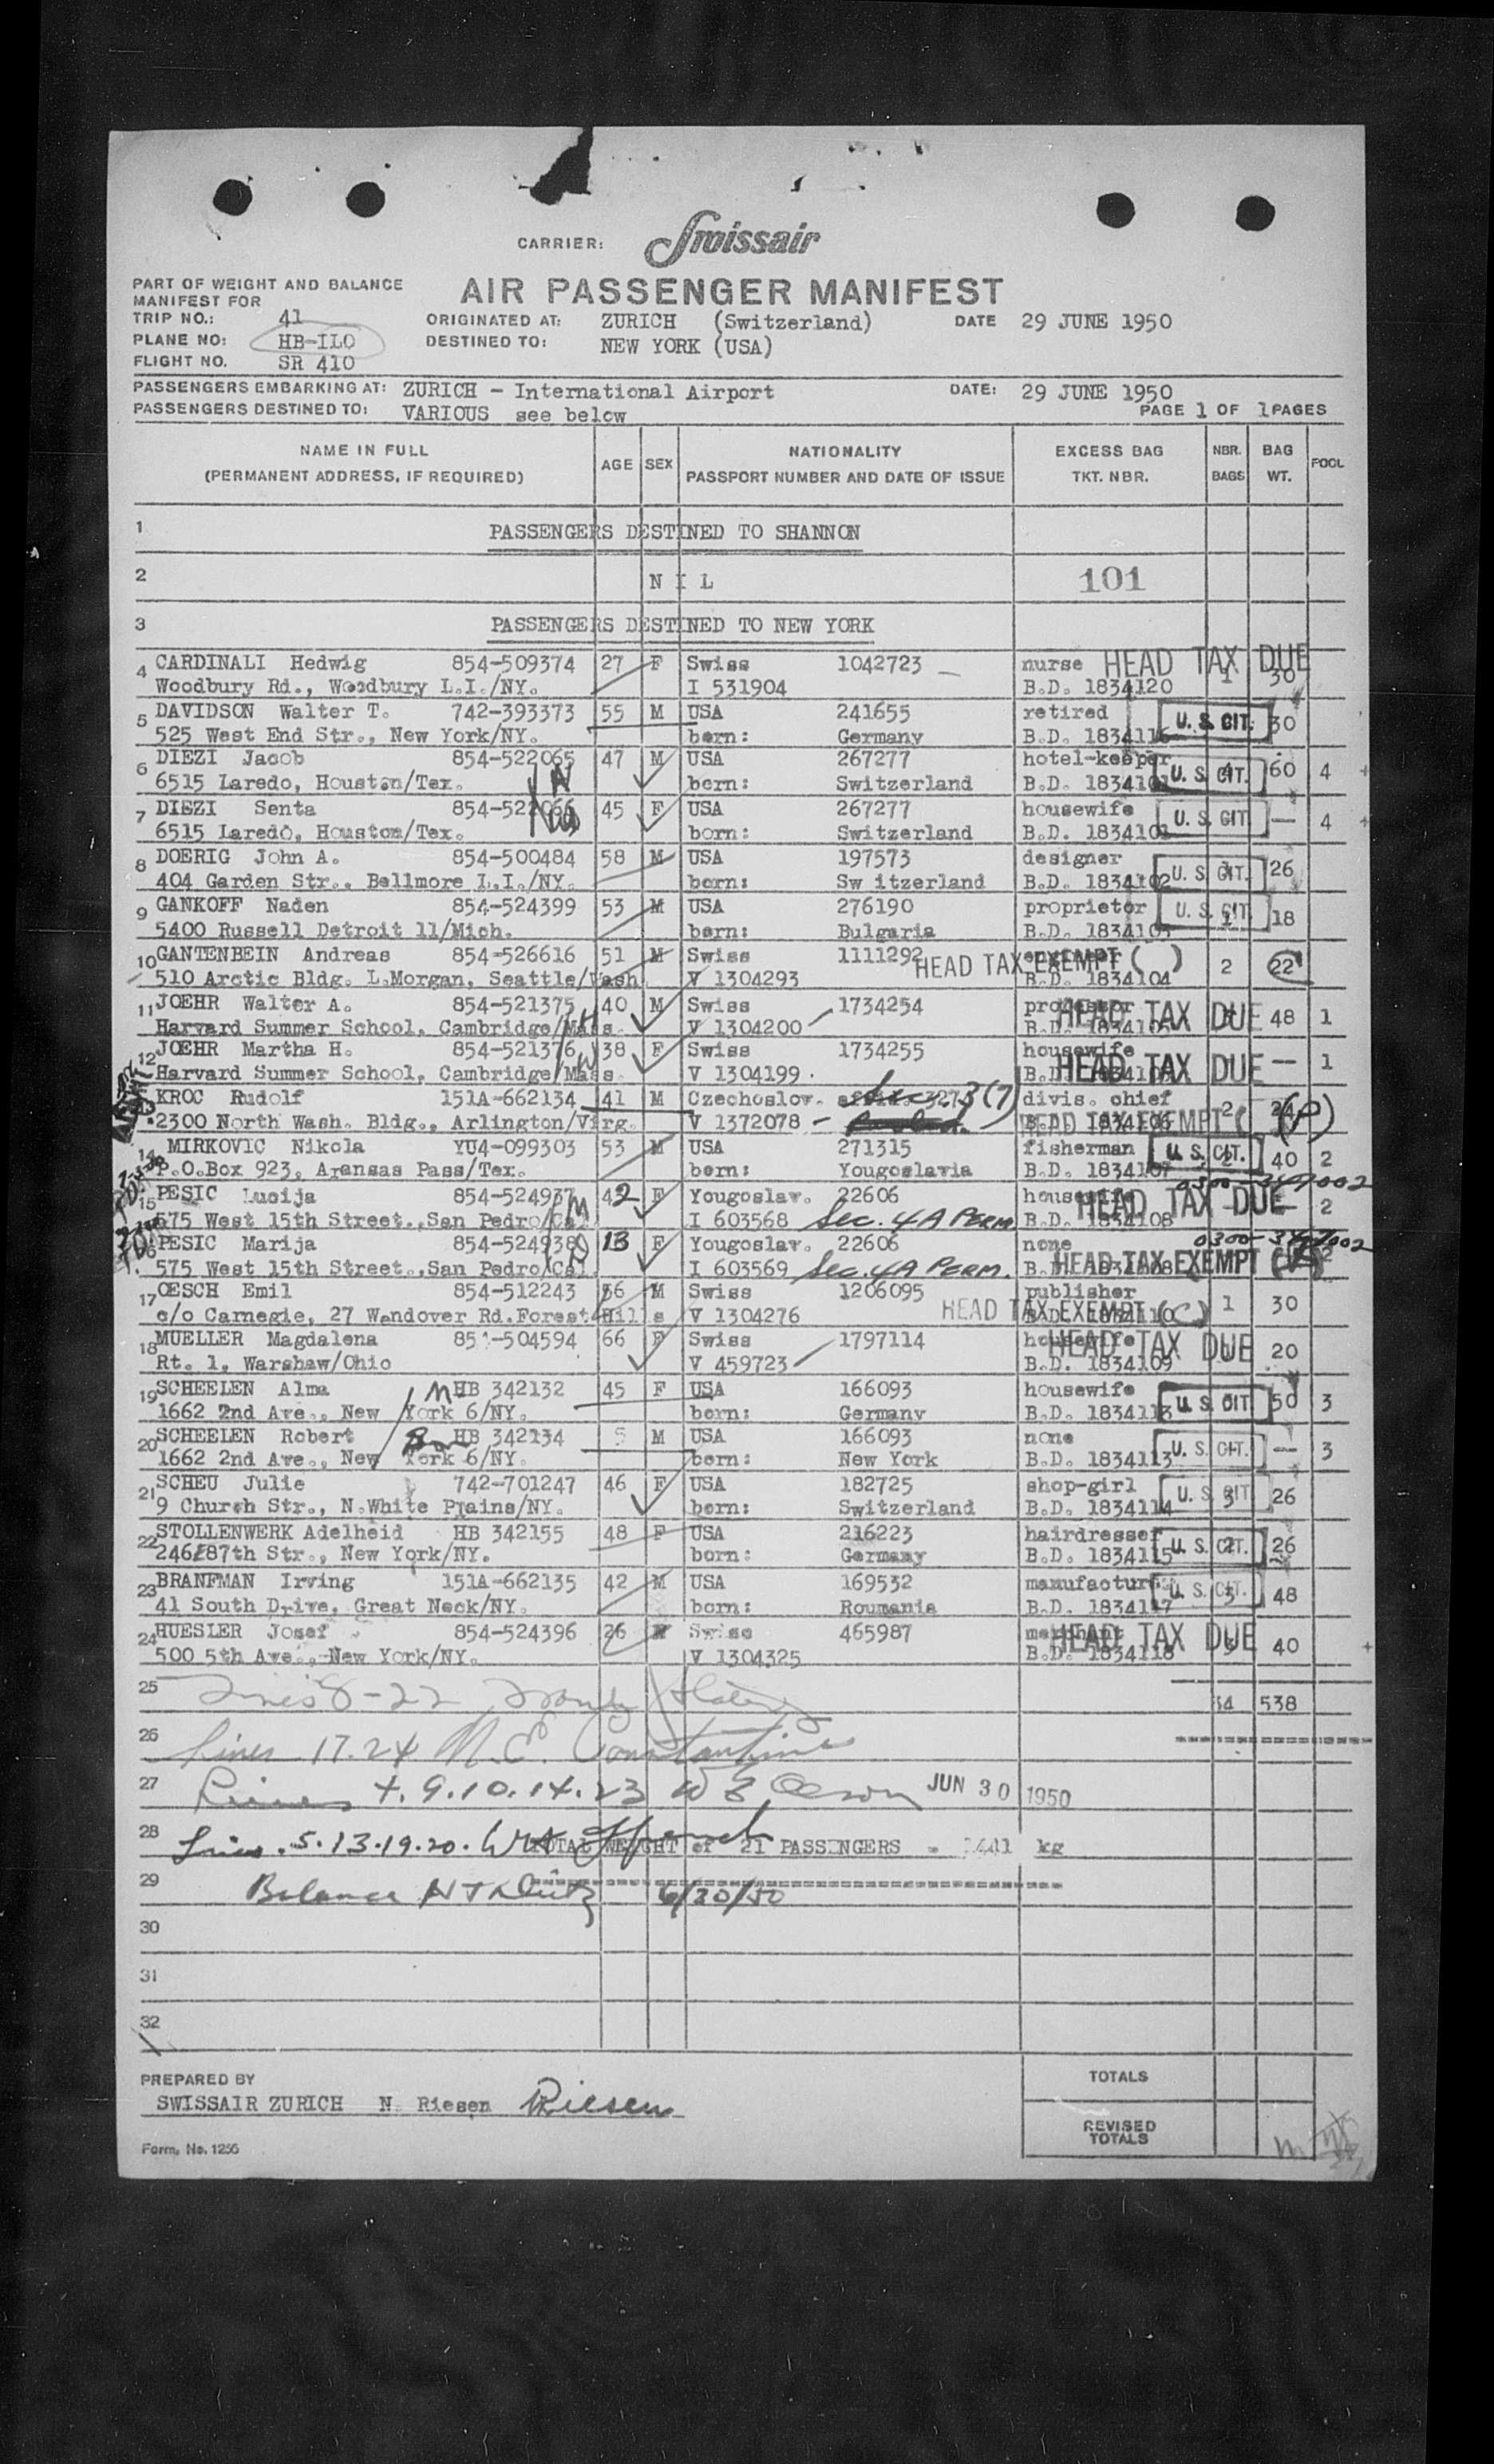 CARRIER: Swissair
PART OF WEIGHT AND BALANCE
MANIFEST FOR
AIR PASSENGER MANIFEST
TRIP NO.: 41 ORIGINATED AT: ZURICH (Switzerland) DATE 29 JUNE 1950
PLANE NO: HB-ILO DESTINED TO: NEW YORK (USA)
FLIGHT NO. SR 410
PASSENGERS EMBARKING AT: ZURICH - International Airport DATE: 29 JUNE 1950
PASSENGERS DESTINED TO: VARIOUS see below PAGE 1 OF 1 PAGES
NAME IN FULL AGE SEX NATIONALITY EXCESS BAG NBR. BAG POOL
(PERMANENT ADDRESS, IF REQUIRED) PASSPORT NUMBER AND DATE OF ISSUE TKT. NBR. BAGS WT.
1 PASSENGERS DESTINED TO SHANNON
2 N I L 101
3 PASSENGERS DESTINED TO NEW YORK
4 CARDINALI Hedwig 854-509374 27 F Swiss 1042723 nurse HEAD TAX DUE 1 30
Woodbury Rd., Woodbury L.I./NY. I 531904 B.D. 1834120
5 DAVIDSON Walter T. 742-393373 55 M USA 241655 retired U.S. CIT. 30
525 West End Str., New York/NY. born: Germany B.D. 1834116
6 DIEZI Jacob 854-522065 47 M USA 267277 hotel-keeper U.S. CIT. 4 60 4
6515 Laredo, Houston/Tex. born: Switzerland B.D. 1834101
7 DIEZI Senta 854-522066 45 F USA 267277 housewife U.S. CIT — 4
6515 Laredo, Houston/Tex. born: Switzerland B.D. 1834101
8 DOERIG John A. 854-500484 58 M USA 197573 designer U.S. CIT. 26
404 Garden Str., Bellmore L.I./NY. born: Sw itzerland B.D. 1834102
9 GANKOFF Naden 854-524399 53 M USA 276190 proprietor U.S. CIT 1 18
5400 Russell Detroit 11/Mich. born: Bulgaria B.D. 1834103
10 GANTENBEIN Andreas 854-526616 51 M Swiss 1111292 HEAD TAX EXEMPT ( ) 2 22
510 Arctic Bldg. L.Morgan, Seattle/Wash. V 1304293 B.D. 1834104
11 JOEHR Walter A. 854-521375 40 M Swiss 1734254 professor HEAD TAX DUE 48 1
Harvard Summer School, Cambridge/Mass. V 1304200 B.D. 1834105
12 JOEHR Martha H. 854-521376 W 38 F Swiss 1734255 housewife HEAD TAX DUE — 1
Harvard Summer School, Cambridge/Mass. V 1304199 B.D. 1834105
KROC Rudolf 151A-662134 41 M Czechoslov. 3(7) divis. chief 2 24 (P)
2300 North Wash. Bldg., Arlington/Virg. V 1372078 B.D. 1834106 HEAD TAX EXEMPT
14 MIRKOVIC Nikola YU4-099303 53 M USA 271315 fisherman U.S. CIT. 2 40 2
P.O.Box 923, Aransas Pass/Tex. born: Yougoslavia B.D. 1834107
0300-349002
15 PESIC Lucija 854-524937 42 F Yougoslav. 22606 housewife HEAD TAX DUE — 2
575 West 15th Street., San Pedro/Cal. I 603568 Sec. 4A PERM. B.D. 1834108
16 PESIC Marija 854-524938 13 F Yougoslav. 22606 none 0300-349002
575 West 15th Street., San Pedro/Cal. I 603569 Sec. 4A PERM. B.D. 1834108 HEAD TAX EXEMPT 2
17 OESCH Emil 854-512243 56 M Swiss 1206095 publisher 1 30
c/o Carnegie, 27 Wendover Rd.Forest Hills V 1304276 HEAD TAX EXEMPT (C) B.D. 1834110
18 MUELLER Magdalena 854-504594 66 F Swiss 1797114 housewife HEAD TAX DUE 20
Rt. 1, Warshaw/Ohio V 459723 B.D. 1834109
19 SCHEELEN Alma M HB 342132 45 F USA 166093 housewife U.S. CIT 50 3
1662 2nd Ave., New York 6/NY. born: Germany B.D. 1834113
20 SCHEELEN Robert HB 342134 5 M USA 166093 none U.S. CIT. — 3
1662 2nd Ave., New York 6/NY. born: New York B.D. 1834113
21 SCHEU Julie 742-701247 46 F USA 182725 shop-girl U.S. CIT 3 26
9 Church Str., N.White Plains/NY. born: Switzerland B.D. 1834114
22 STOLLENWERK Adelheid HB 342155 48 F USA 216223 hairdresser U.S. CIT. 2 26
246E87th Str., New York/NY. born: Germany B.D. 1834115
23 BRANFMAN Irving 151A-662135 42 M USA 169532 manufacturer U.S. CIT. 3 48
41 South Drive, Great Neck/NY. born: Roumania B.D. 1834117
24 HUESLER Josef 854-524396 26 M Swiss 465987 merchant HEAD TAX DUE 3 40
500 5th Ave., New York/NY. V 1304325 B.D. 1834118
25 Lines 8-22 34 538
26 Lines 17.24 N.E. Constantine
27 Lines 4.9.10.14.23 W E Olson JUN 30 1950
28 Lines 5.13.19.20. TOTAL WEIGHT of 21 PASSENGERS = 1441 kg
29 Balance 6/30/50
30
31
32
PREPARED BY TOTALS
SWISSAIR ZURICH N. Riesen Riesen
REVISED
TOTALS
Form. No. 1256